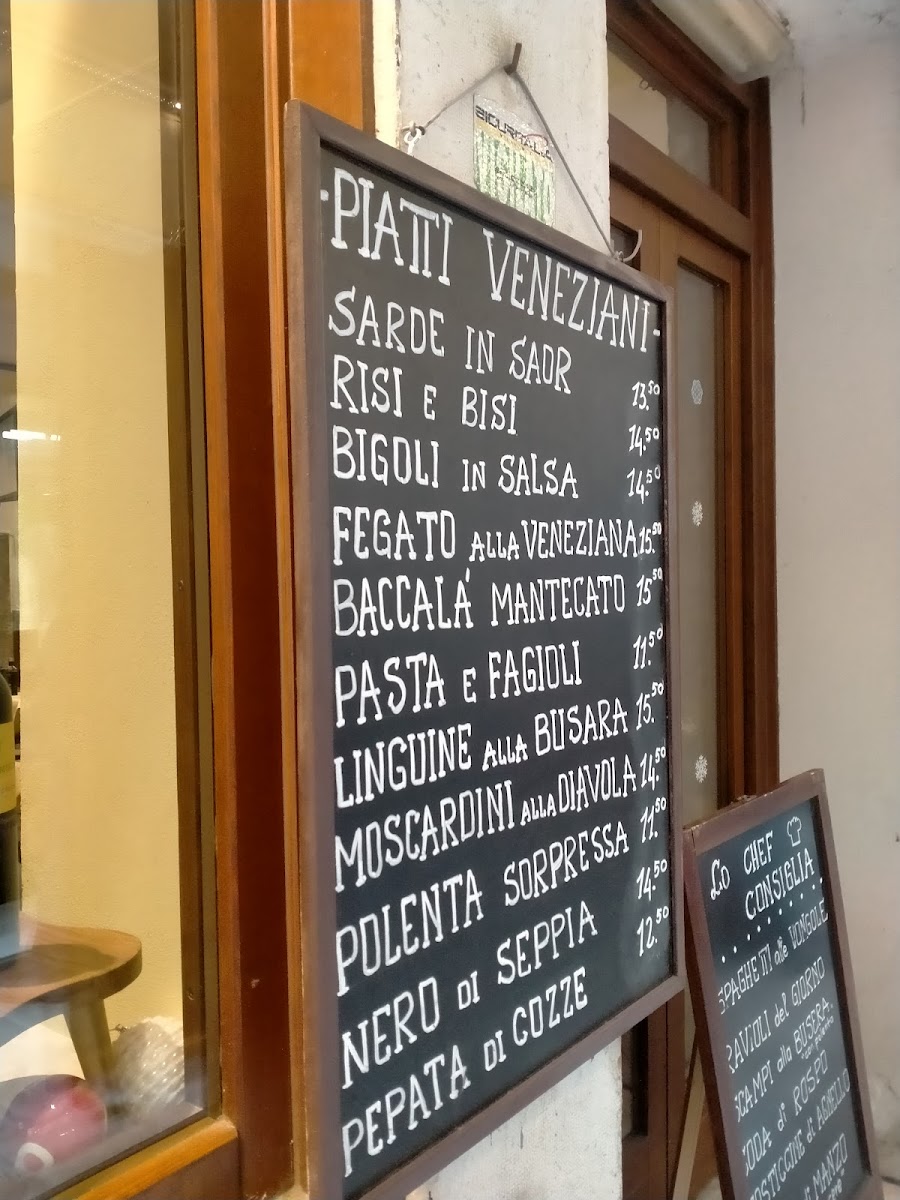 SICURITALIA
-PIATTI VENEZIANI-
SARDE IN SAOR 13.50
RISI E BISI 14.50
BIGOLI IN SALSA 14.50
FEGATO ALLA VENEZIANA 15.50
BACCALÁ MANTECATO 15.50
PASTA E FAGIOLI 11.50
LINGUINE ALLA BUSARA 15.50
MOSCARDINI ALLA DIAVOLA 14.50
POLENTA SORPRESSA 11.50
NERO DI SEPPIA 14.50
PEPATA DI COZZE 12.50
LO CHEF
CONSIGLIA
SPAGHETTI alle VONGOLE
RAVIOLI del GIORNO
SCAMPI alla BUSERA
CODA di ROSPO
di AGNELLO
MANZO